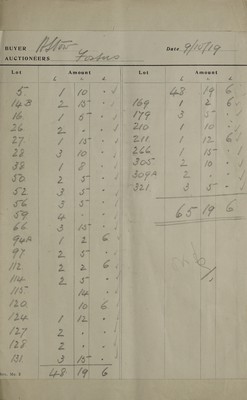 BUYER
Date 9/10/19
AUCTIONEERS
Lot Amount Lot Amount
£ s. d. £ s. d.
5 1 10 • 48 19 6
14B 2 15 • 169 1 2 6
16 1 5 • 179 3 5 •
26 2 • • 210 1 10 •
27 1 15 • 211 1 12 6
28 3 10 • 266 1 15 •
38 1 8 • 305 2 10 •
50 2 5 • 309A 2 • •
52 3 5 • 321 3 5 •
56 3 5 •
59 4 • • 65 19 6
66 3 15 •
94A 1 2 6
97 2 5 •
112 2 2 6
114 2 5 •
115 14 •
120 10 6
124 1 12 •
127 2 • •
128 2 • •
131 3 15 •
48 19 6